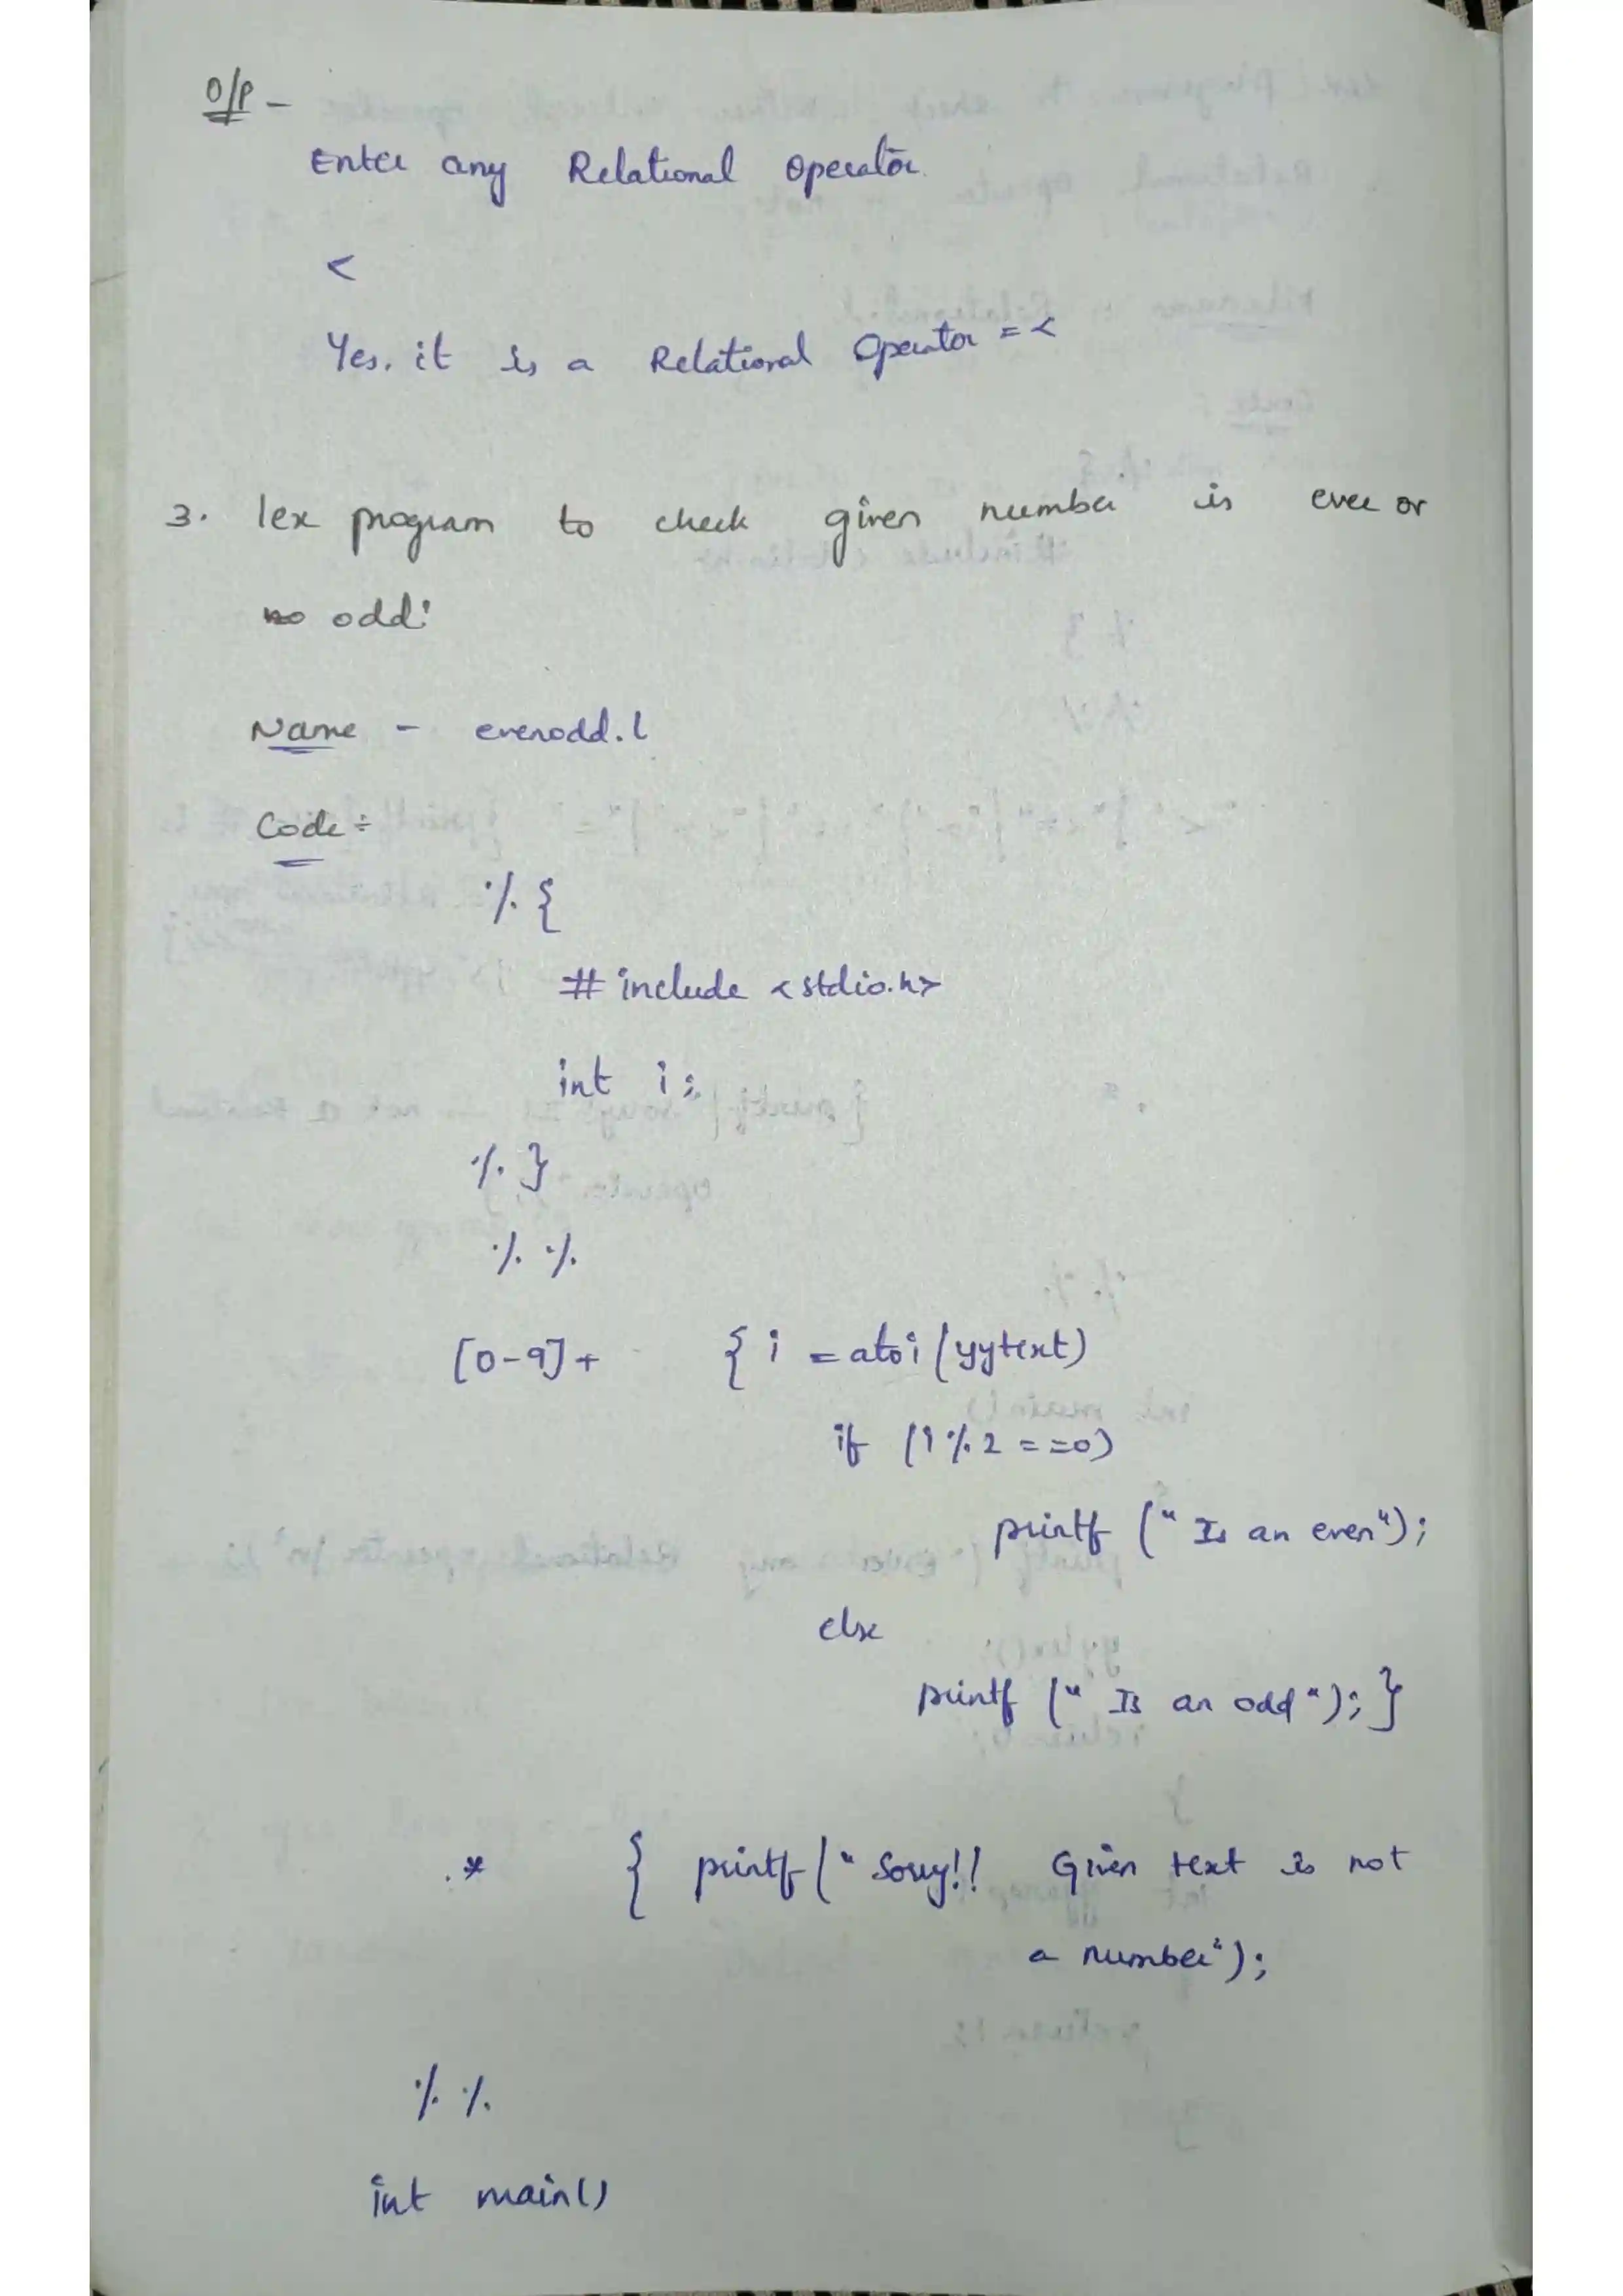 O/P -
Enter any Relational Operator.
<
Yes, it is a Relational Operator = <
3. lex program to check given number is even or
odd:
Name - evenodd.l
Code :
%{
#include <stdio.h>
int i;
%}
%%
[0-9]+ { i = atoi(yytext)
if (i%2 = =0)
printf (" Is an even");
else
printf (" Is an odd"); }
.* { printf (" Sorry!! Given text is not
a number");
%%
int main()